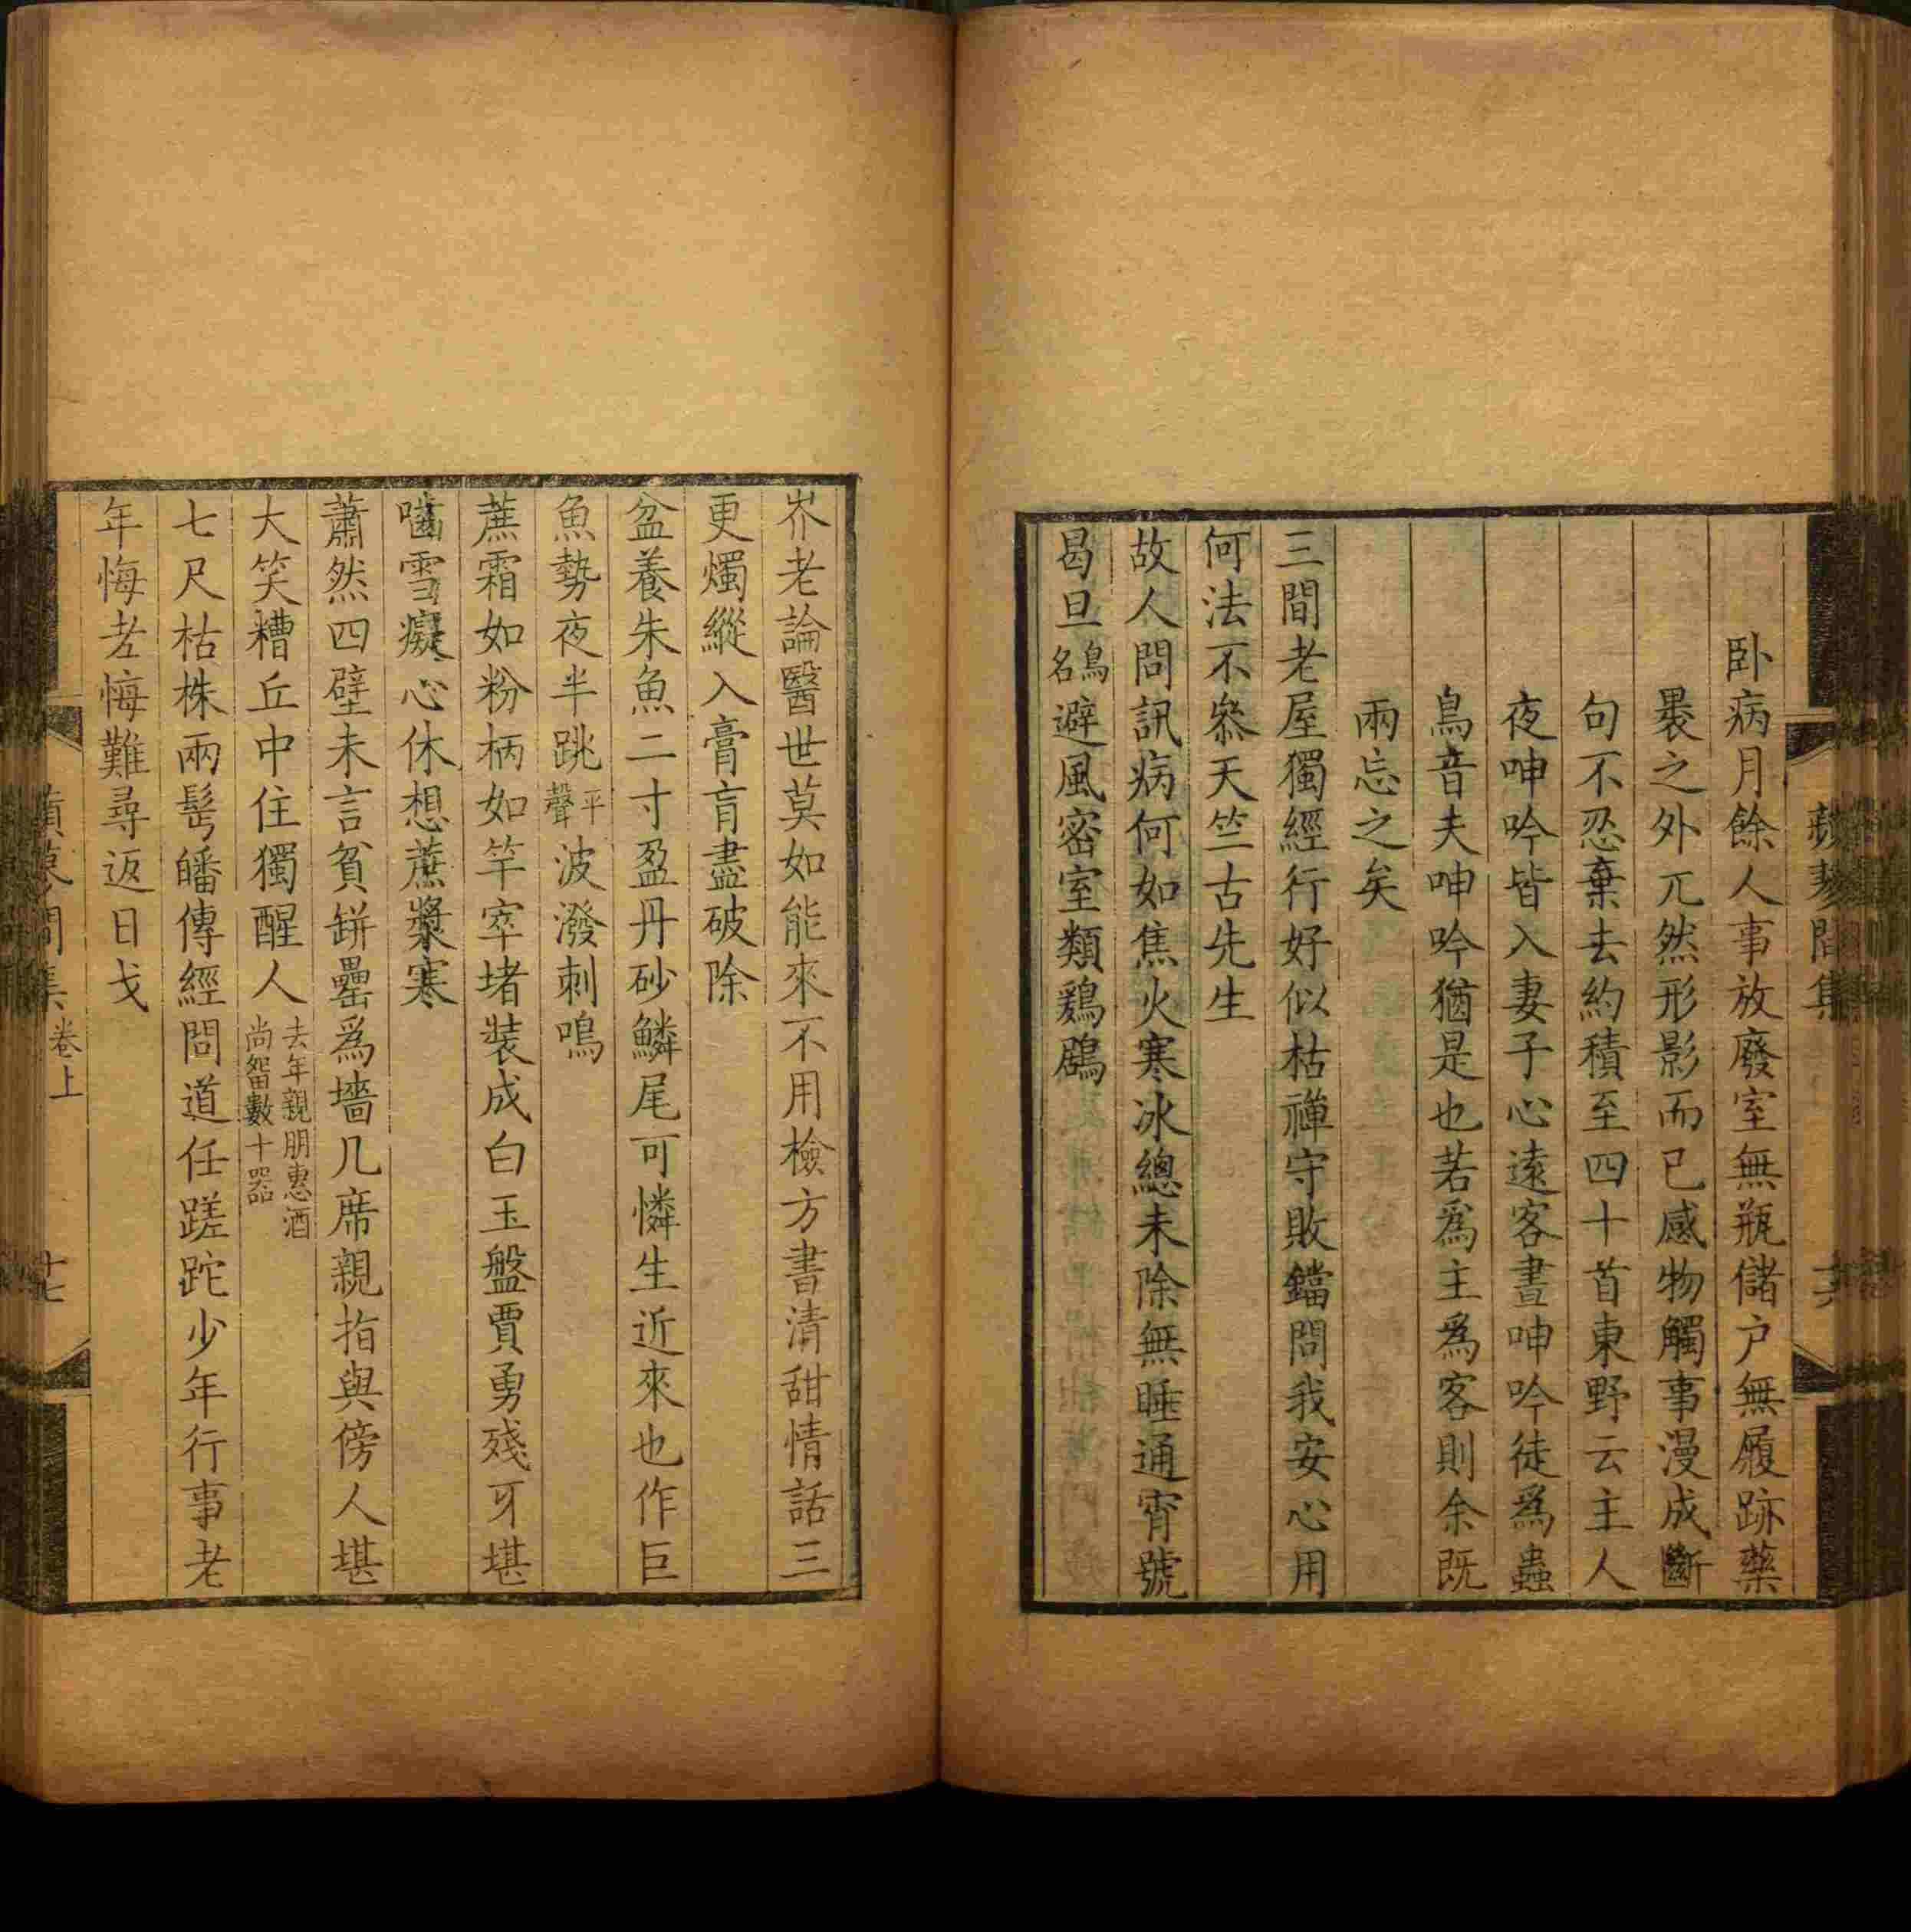 卧病月餘人事放廢室無瓶儲户無履跡藥
褁之外兀然形影而已感物觸事漫成斷
句不忍棄去約積至四十首東野云主人
夜呻吟皆入妻子心遠客晝呻吟徒爲蟲
鳥音夫呻吟猶是也若爲主爲客則余既
兩忘之矣
三間老屋獨經行好似枯禪守敗鐺問我安心用
何法不叅天竺古先生
故人問訊病何如焦火寒冰總未除無睡通宵號
曷旦鳥名避風密室類鷄鶋
岕老論醫世莫如能來不用檢方書清甜情話三
更燭縱入膏肓盡破除
盆養朱魚二寸盈丹砂鱗尾可憐生近來也作巨
魚勢夜半跳平聲波潑刺鳴
蔗霜如粉柄如竿窣堵裝成白玉盤賈勇殘牙堪
嚙雪癡心休想蔗漿寒
蕭然四壁未言貧缾罍爲墻几席親指與傍人堪
大笑糟丘中住獨醒人去年親朋惠酒尚畱數十器
七尺枯株兩鬢皤傳經問道任蹉跎少年行事老
年悔老悔難尋返日戈
卷上
十七